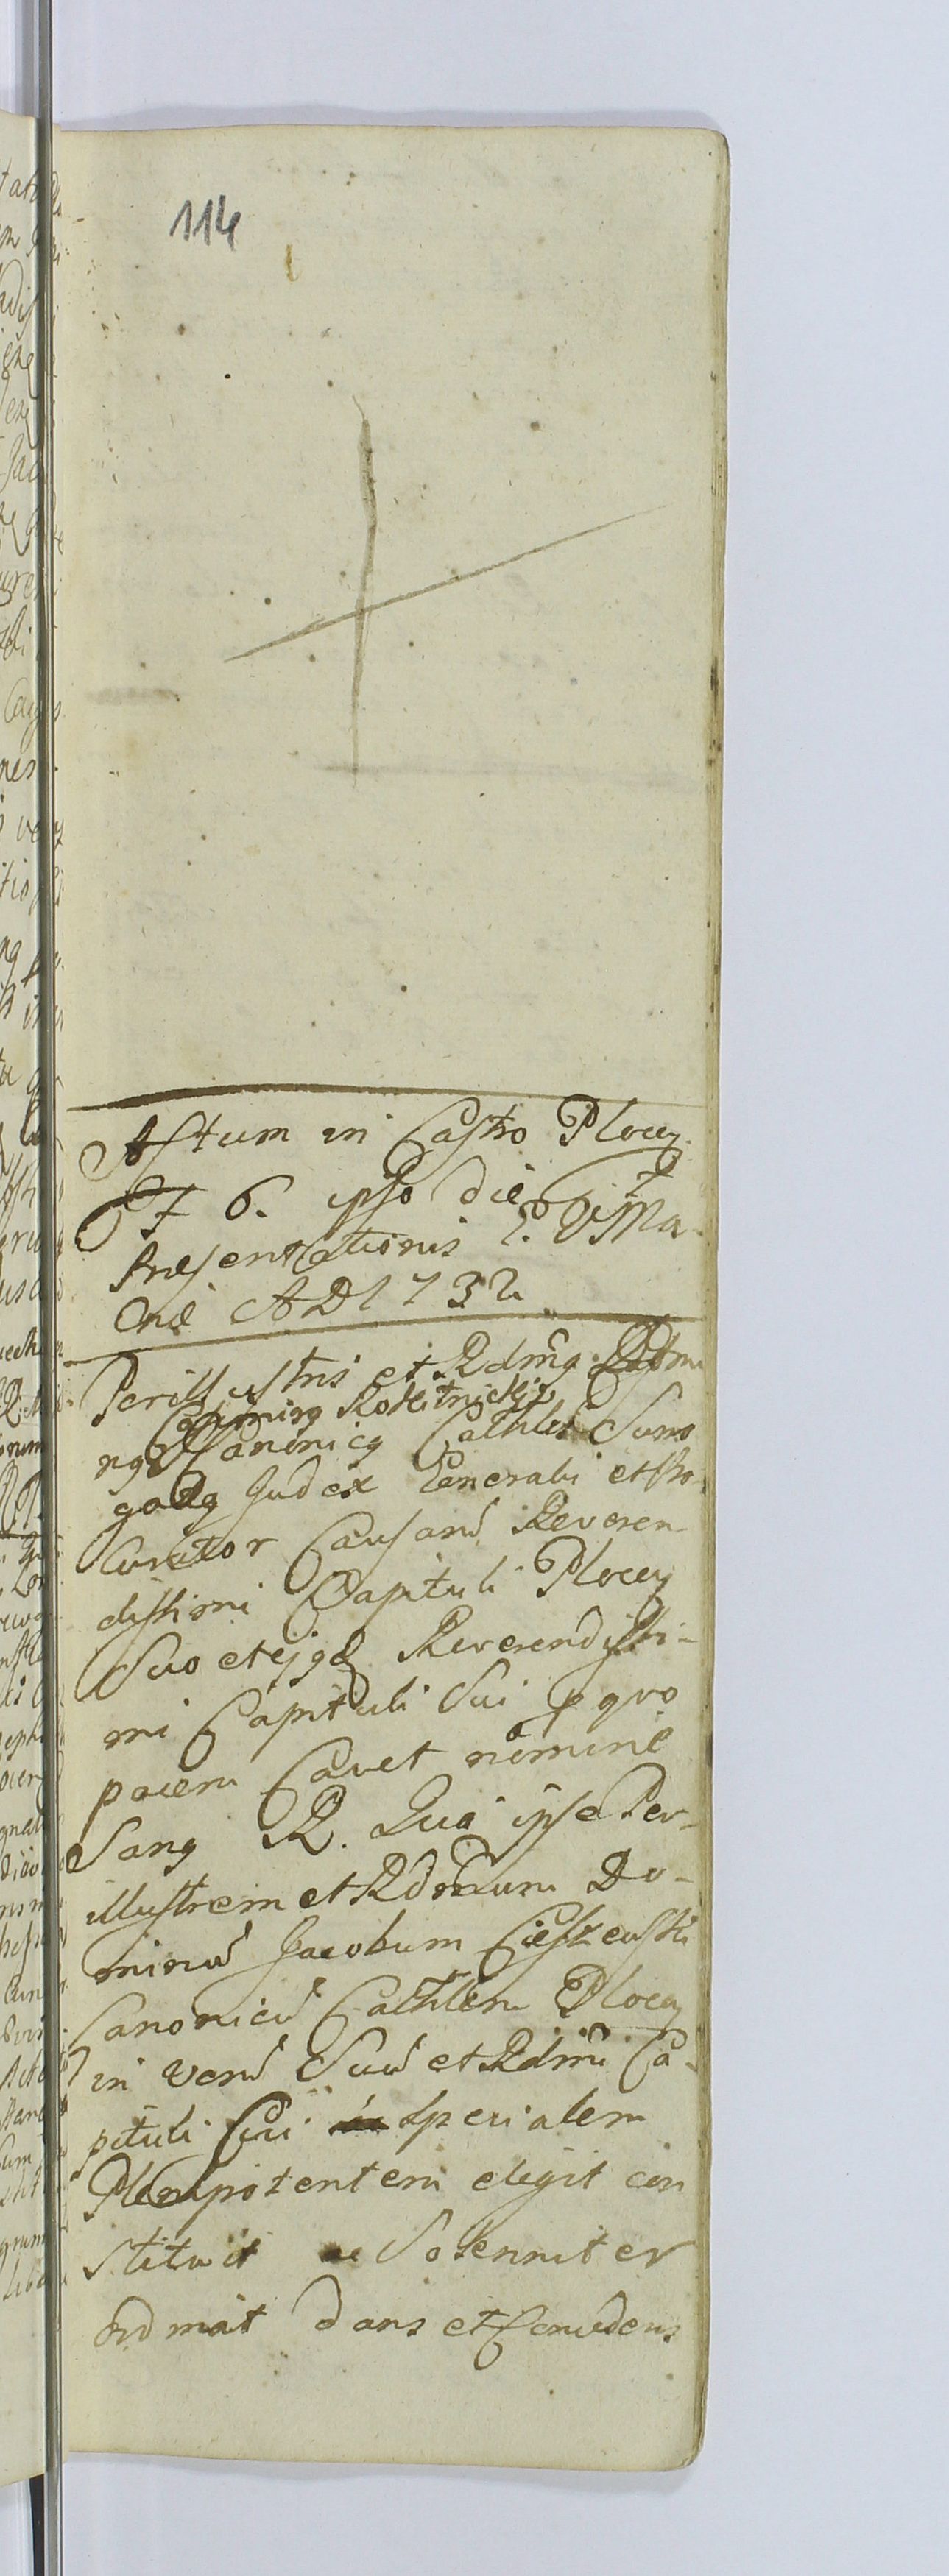 114
Actum in Castro Plocen
F 6. ipso die
Præsentationis B. V. Ma
A D 1732
Perillustris et Rdmq Domi
Casimirq Rokitnicki
nq Canonicq Cathlis Suro
gatq Judex Generalis et Pro-
curator Causarū Reveren
dissimi Capituli Plocen
Suo et ejqd Reverendissi-
mi Capituli Sui p quo
præm Cavet nomine
Sanq R. Quia ipse Per-
illustrem et Rdmum Do-
minū Jacobum Cieszewski
Canonicū Cathlem Plocen
in verū Suū et Rdmi Ca-
pituli Sui Specialem
Plenipotentem elegit con
stituit ac Solenniter
ordinat dans et Concedens